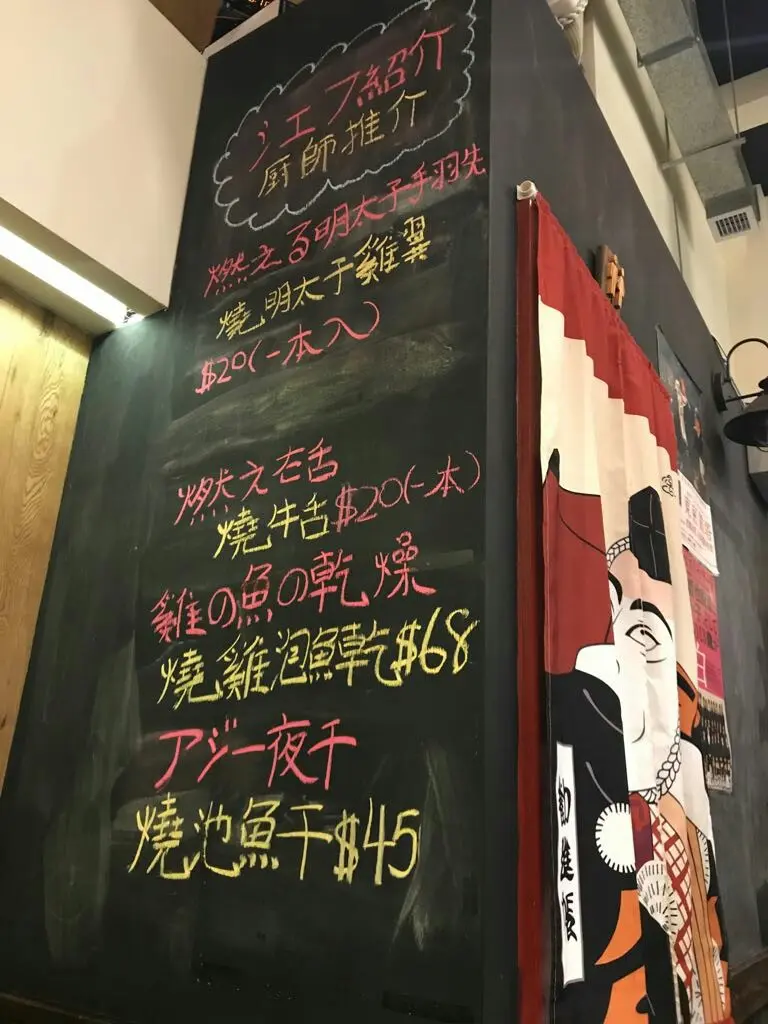 シェフ紹介
厨師推介
燃える明太子手羽先
燒明太子雞翼
$20(一本入)
燃え舌
燒牛舌$20(一本)
雞の魚の乾燥
燒雞泡魚乾$68
アジ一夜干
燒池魚干$45
勧進帳